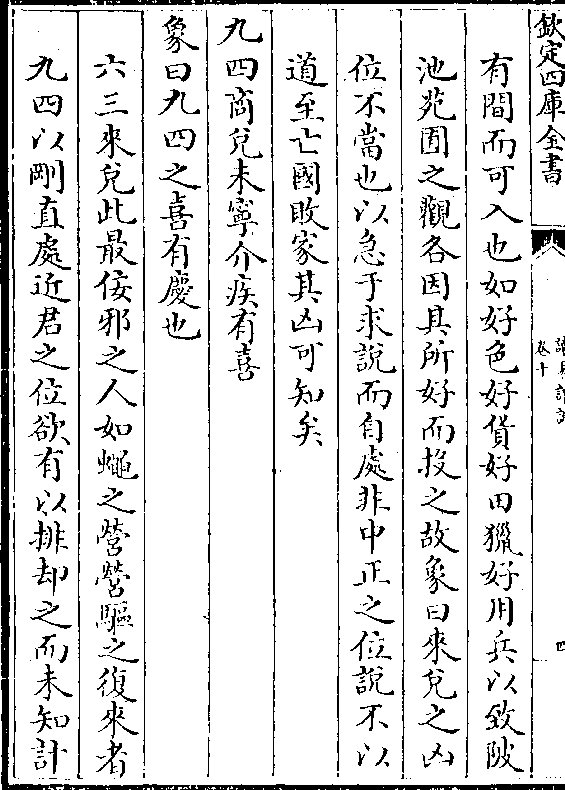 欽定四庫全書
卷十
四
有間而可入也如好色好貨好田獵好用兵以致陂
池苑囿之觀各因其所好而投之故象曰來兌之凶
位不當也以急于求說而自處非中正之位說不以
道至亡國敗家其凶可知矣
九四商兌未寧介疾有喜
象曰九四之喜有慶也
六三來兌此最佞邪之人如蠅之營營驅之復來者
九四以剛直處近君之位欲有以排却之而未知計